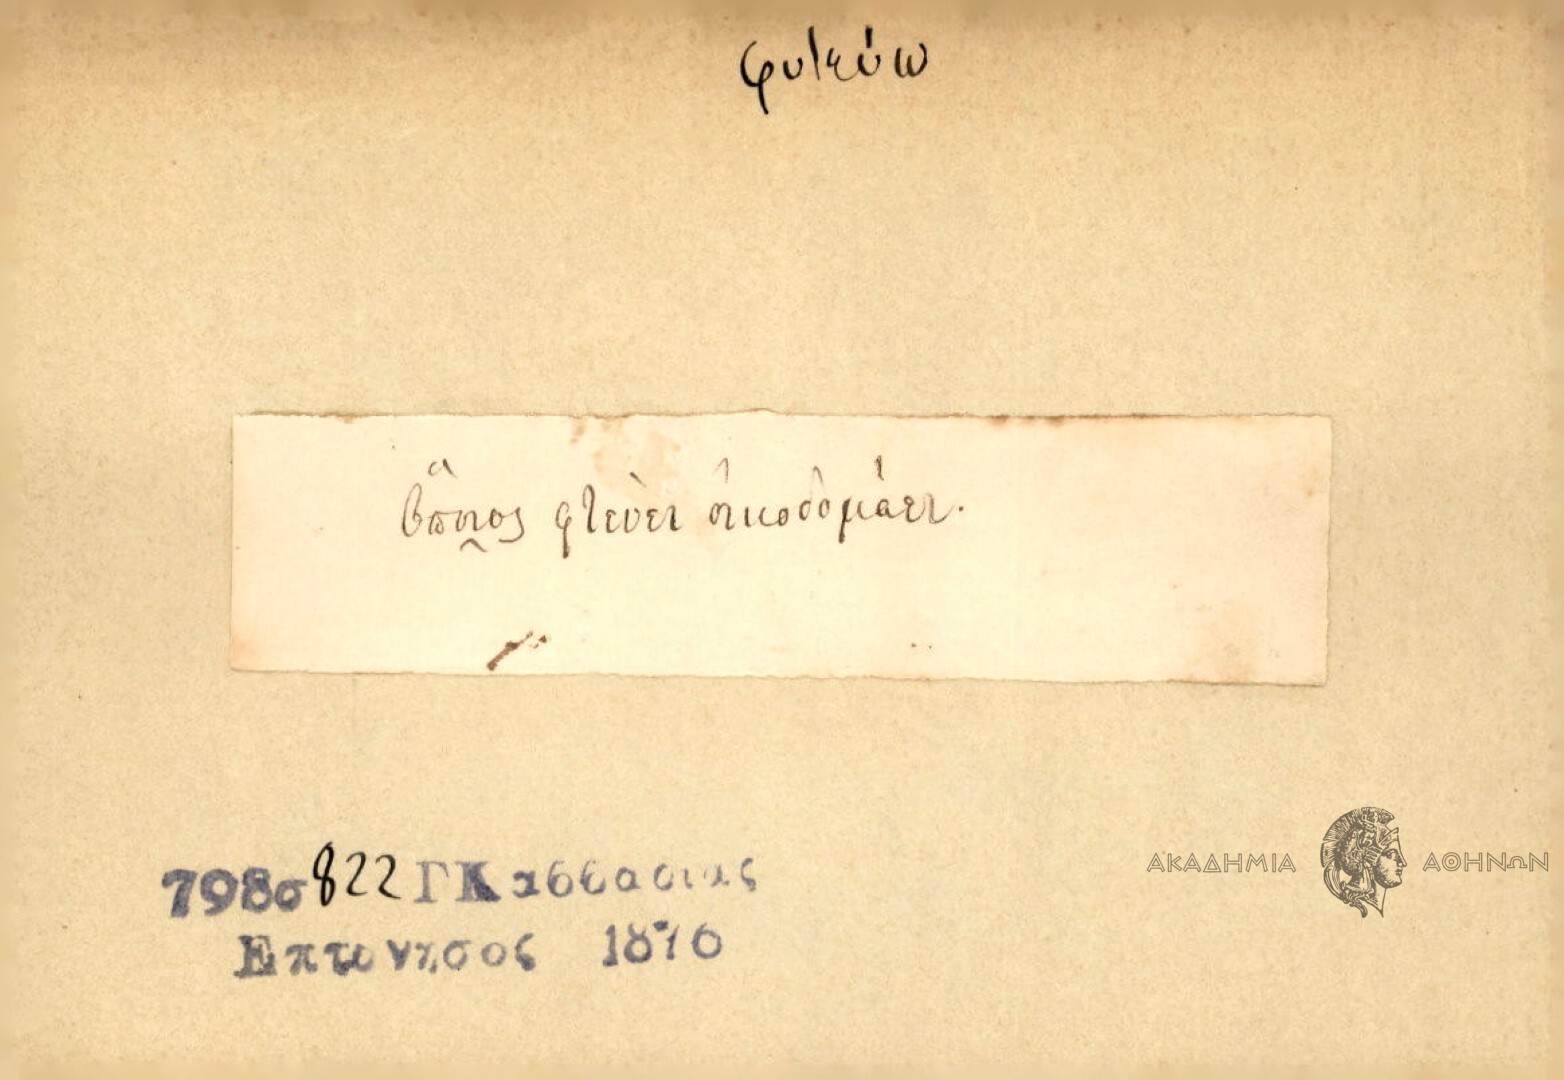 φυτεύω
Ὅποιος φτεύει οἰκοδομάει.
798σ 822 ΓΚαββαδιας
Επτανησος 1876
ΑΚΑΔΗΜΙΑ ΑΘΗΝΩΝ